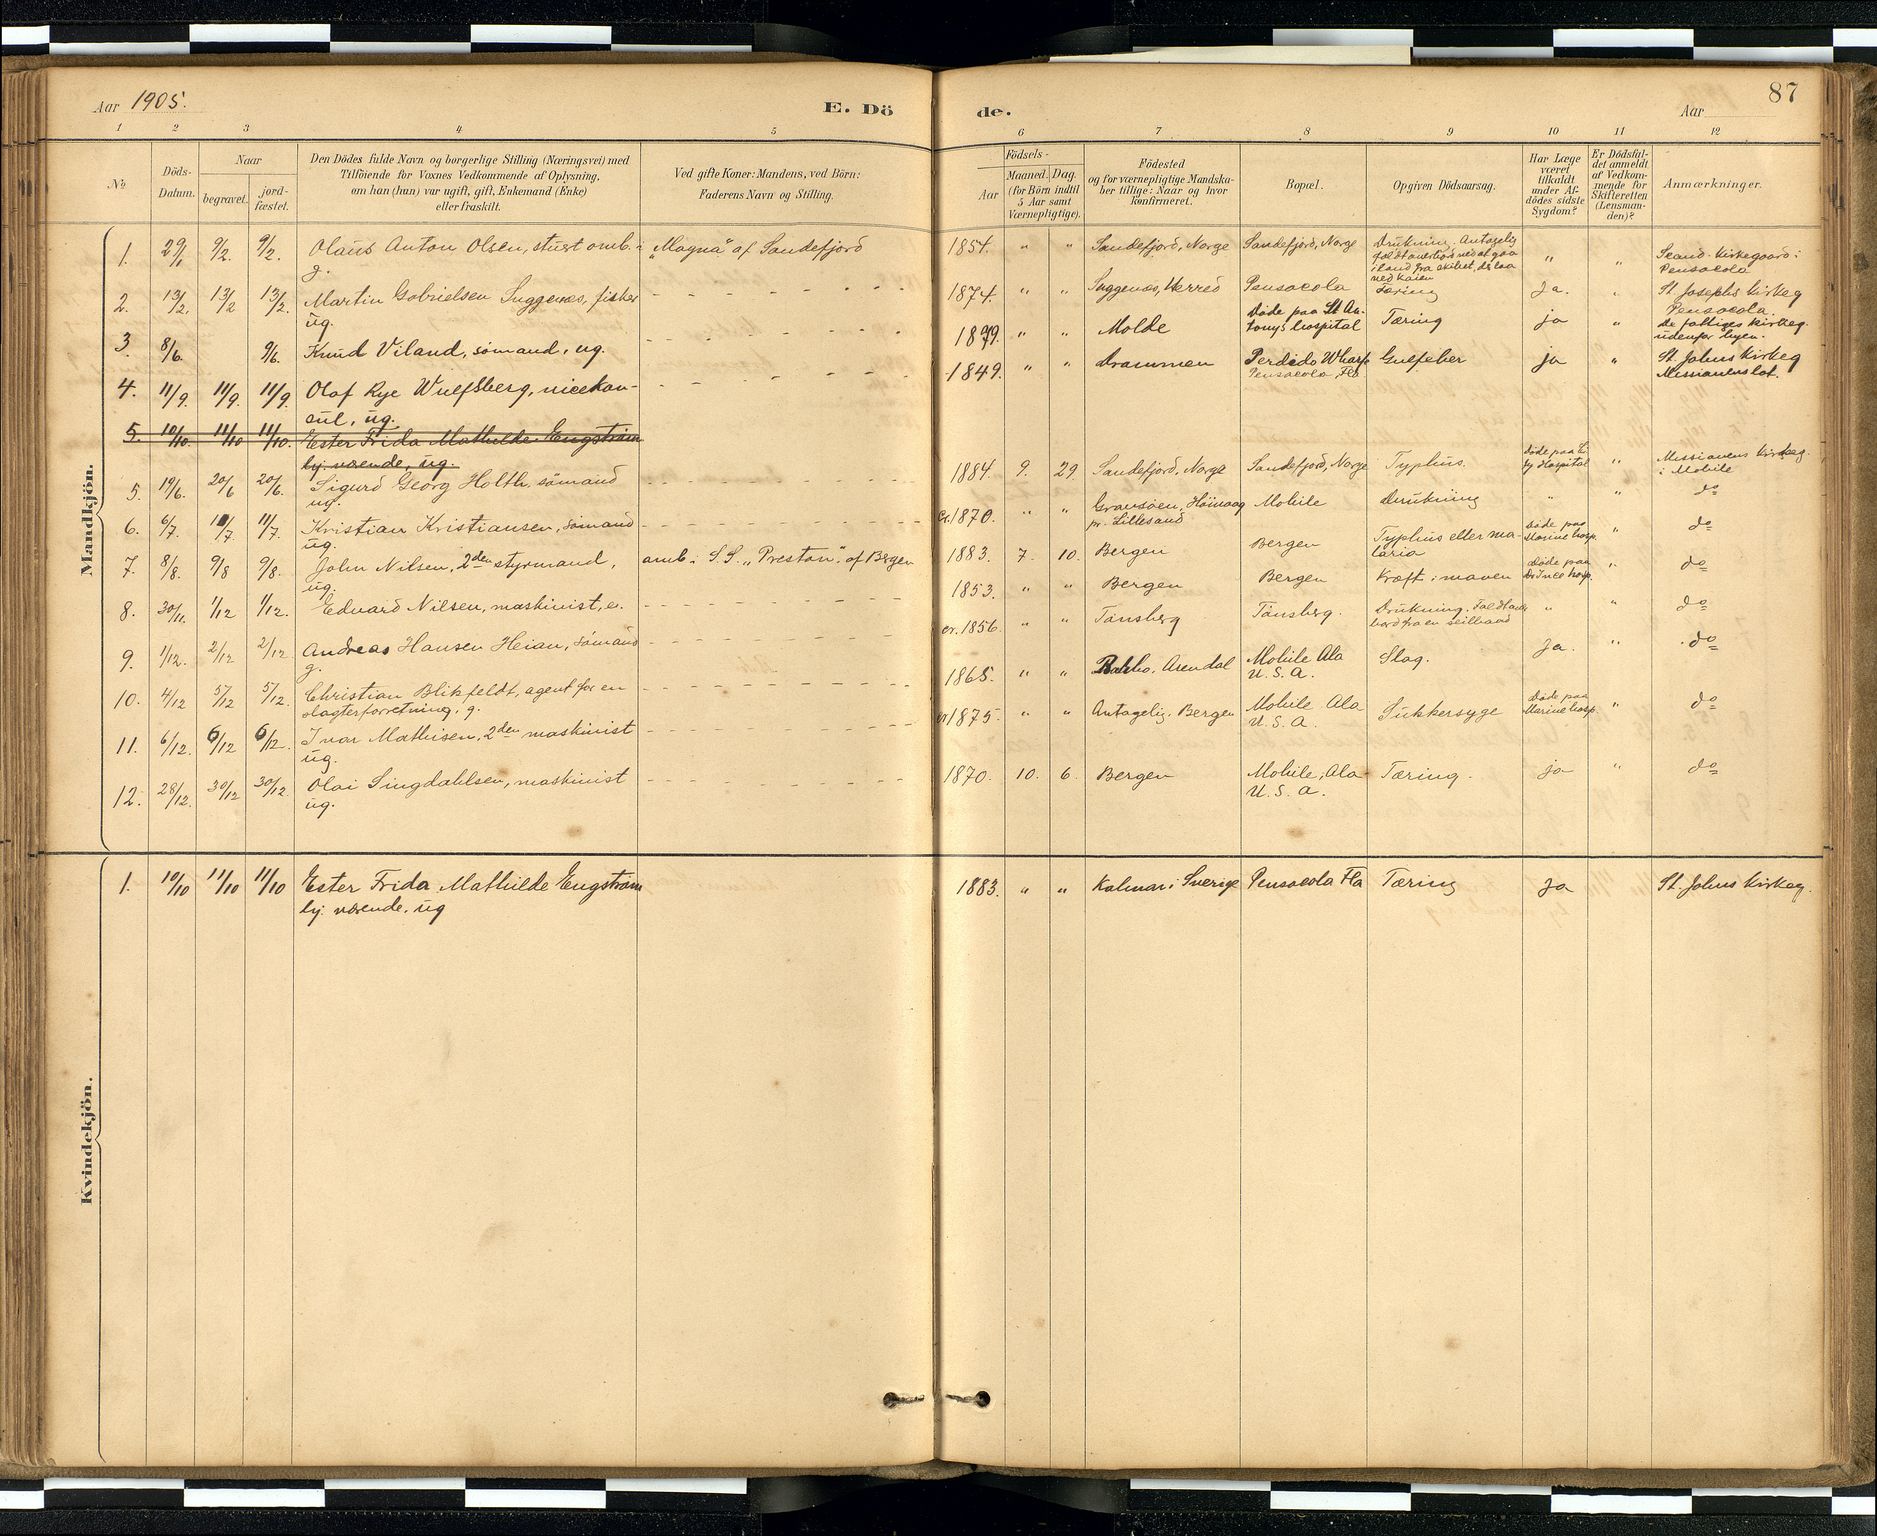 Aar 1905.
E. Dö
de.
Aar
87
1 2 3 4 5 6 7 8 9 10 11 12
No
Döds-
Datum.
Naar
begravet.
jord-
fæstet.
Den Dödes fulde Navn og borgerlige Stilling (Næringsvei) med
Tilföiende for Voxnes Vedkommende af Oplysning,
om han (hun) var ugift, gift, Enkemand (Enke)
eller fraskilt.
Ved gifte Koner: Mandens, ved Börn:
Faderens Navn og Stilling.
Födsels-
Aar
Maaned. Dag.
(for Börn indtil
5 Aar samt
Værnepligtige).
Födested
og for værnepligtige Mandska-
ber tillige: Naar og hvor
konfirmeret.
Bopæl.
Opgiven Dödsaarsag.
Har Læge
været
tilkaldt
under Af-
dödes sidste
Sygdom?
Er Dödsfal-
det anmeldt
af Vedkom-
mende for
Skifteretten
(Lensman-
den)?
Anmærkninger.
Mandkjön.
1. 29/1 9/2. 9/2. Olaus Anton Olsen, stuert omb. "Magna" af Sandefjord
g.
1854. " " Sandefjord, Norge Sandefjord, Norge Drukning. Antagelig
faldt overbord ved at gaa
iland fra skibet, der laa
ved kaien
" " Scand. Kirkegaard i
Pensacola
2. 13/2. 13/2 13/2. Martin Gabrielsen Suggenæs, fisker
ug.
1874. " " Suggenæs, Herred Pensacola Tæring Ja. " St. Josephs Kirkeg
Pensacola.
3. 8/6. 9/6. Knud Viland, sømand, ug.
1879. " " Molde Døde paa St An-
tony's hospital Tæring ja " De fattiges kirkeg.
udenfor byen.
4. 11/9. 11/9. 11/9. Olaf Rye Wulfsberg, vicekon-
sul, ug.
1849. " " Drammen Perdido Wharf
Pensacola, Fla. Gulfeber ja " St. Johns Kirkeg
Missionens lot.
5. 10/10. 11/10 11/10. Ester Frida Mathilde Engstrøm
hj. værende, ug.
5. 19/6. 20/6 20/6. Sigurd Georg Holth, sømand
ug.
1884. 9. 29. Sandefjord, Norge Sandefjord, Norge Typhus. Døde paa Ci-
ty Hospital " Missionens kirkeg.
i Mobile
6. 6/7 11/7 11/7. Kristian Kristiansen, sømand
ug.
cr. 1870. " " Gransøen, Høivaag
pr. Lillesand Mobile Drukning " " do
7. 8/8. 9/8 9/8. John Nilsen, 2den styrmand, omb. S.S. "Preston" af Bergen
ug.
1883. 7. 10. Bergen Bergen Typhus eller ma-
laria Døde paa
Marine hosp. " do
8. 30/11. 1/12 1/12. Edvard Nilsen, maskinist, e.
1853. " " Bergen Bergen Kræft i maven Døde paa
Dr Ince hosp. " do
9. 1/12. 2/12 2/12. Andreas Hansen Heian, sømand
g.
cr. 1856. " " Tønsberg Tønsberg. Drukning. Faldt over
bord fra en seilbaad " " do
10. 4/12 5/12 5/12. Christian Blikfeldt, agent for en
slagterforretning, g.
1865. " " Arendal Mobile Ala
U.S.A. Slag. Ja. " do
11. 6/12. 6/12 6/12. Ivar Mathisen, 2den maskinist
ug.
cr 1875. " " Antagelig Bergen Mobile, Ala
U.S.A. Sukkersyge Døde paa
Marine hosp. " do
12. 28/12. 30/12 30/12. Olai Singdahlsen, maskinist
ug.
1870. 10. 6. Bergen Mobile, Ala
U.S.A. Tæring. ja " do
Kvindekjön.
1. 10/10 11/10 11/10 Ester Frida Mathilde Engstrøm
hj. værende, ug
1883. " " Kalmar i Sverige Pensacola Fla Tæring Ja St. Johns Kirkeg.